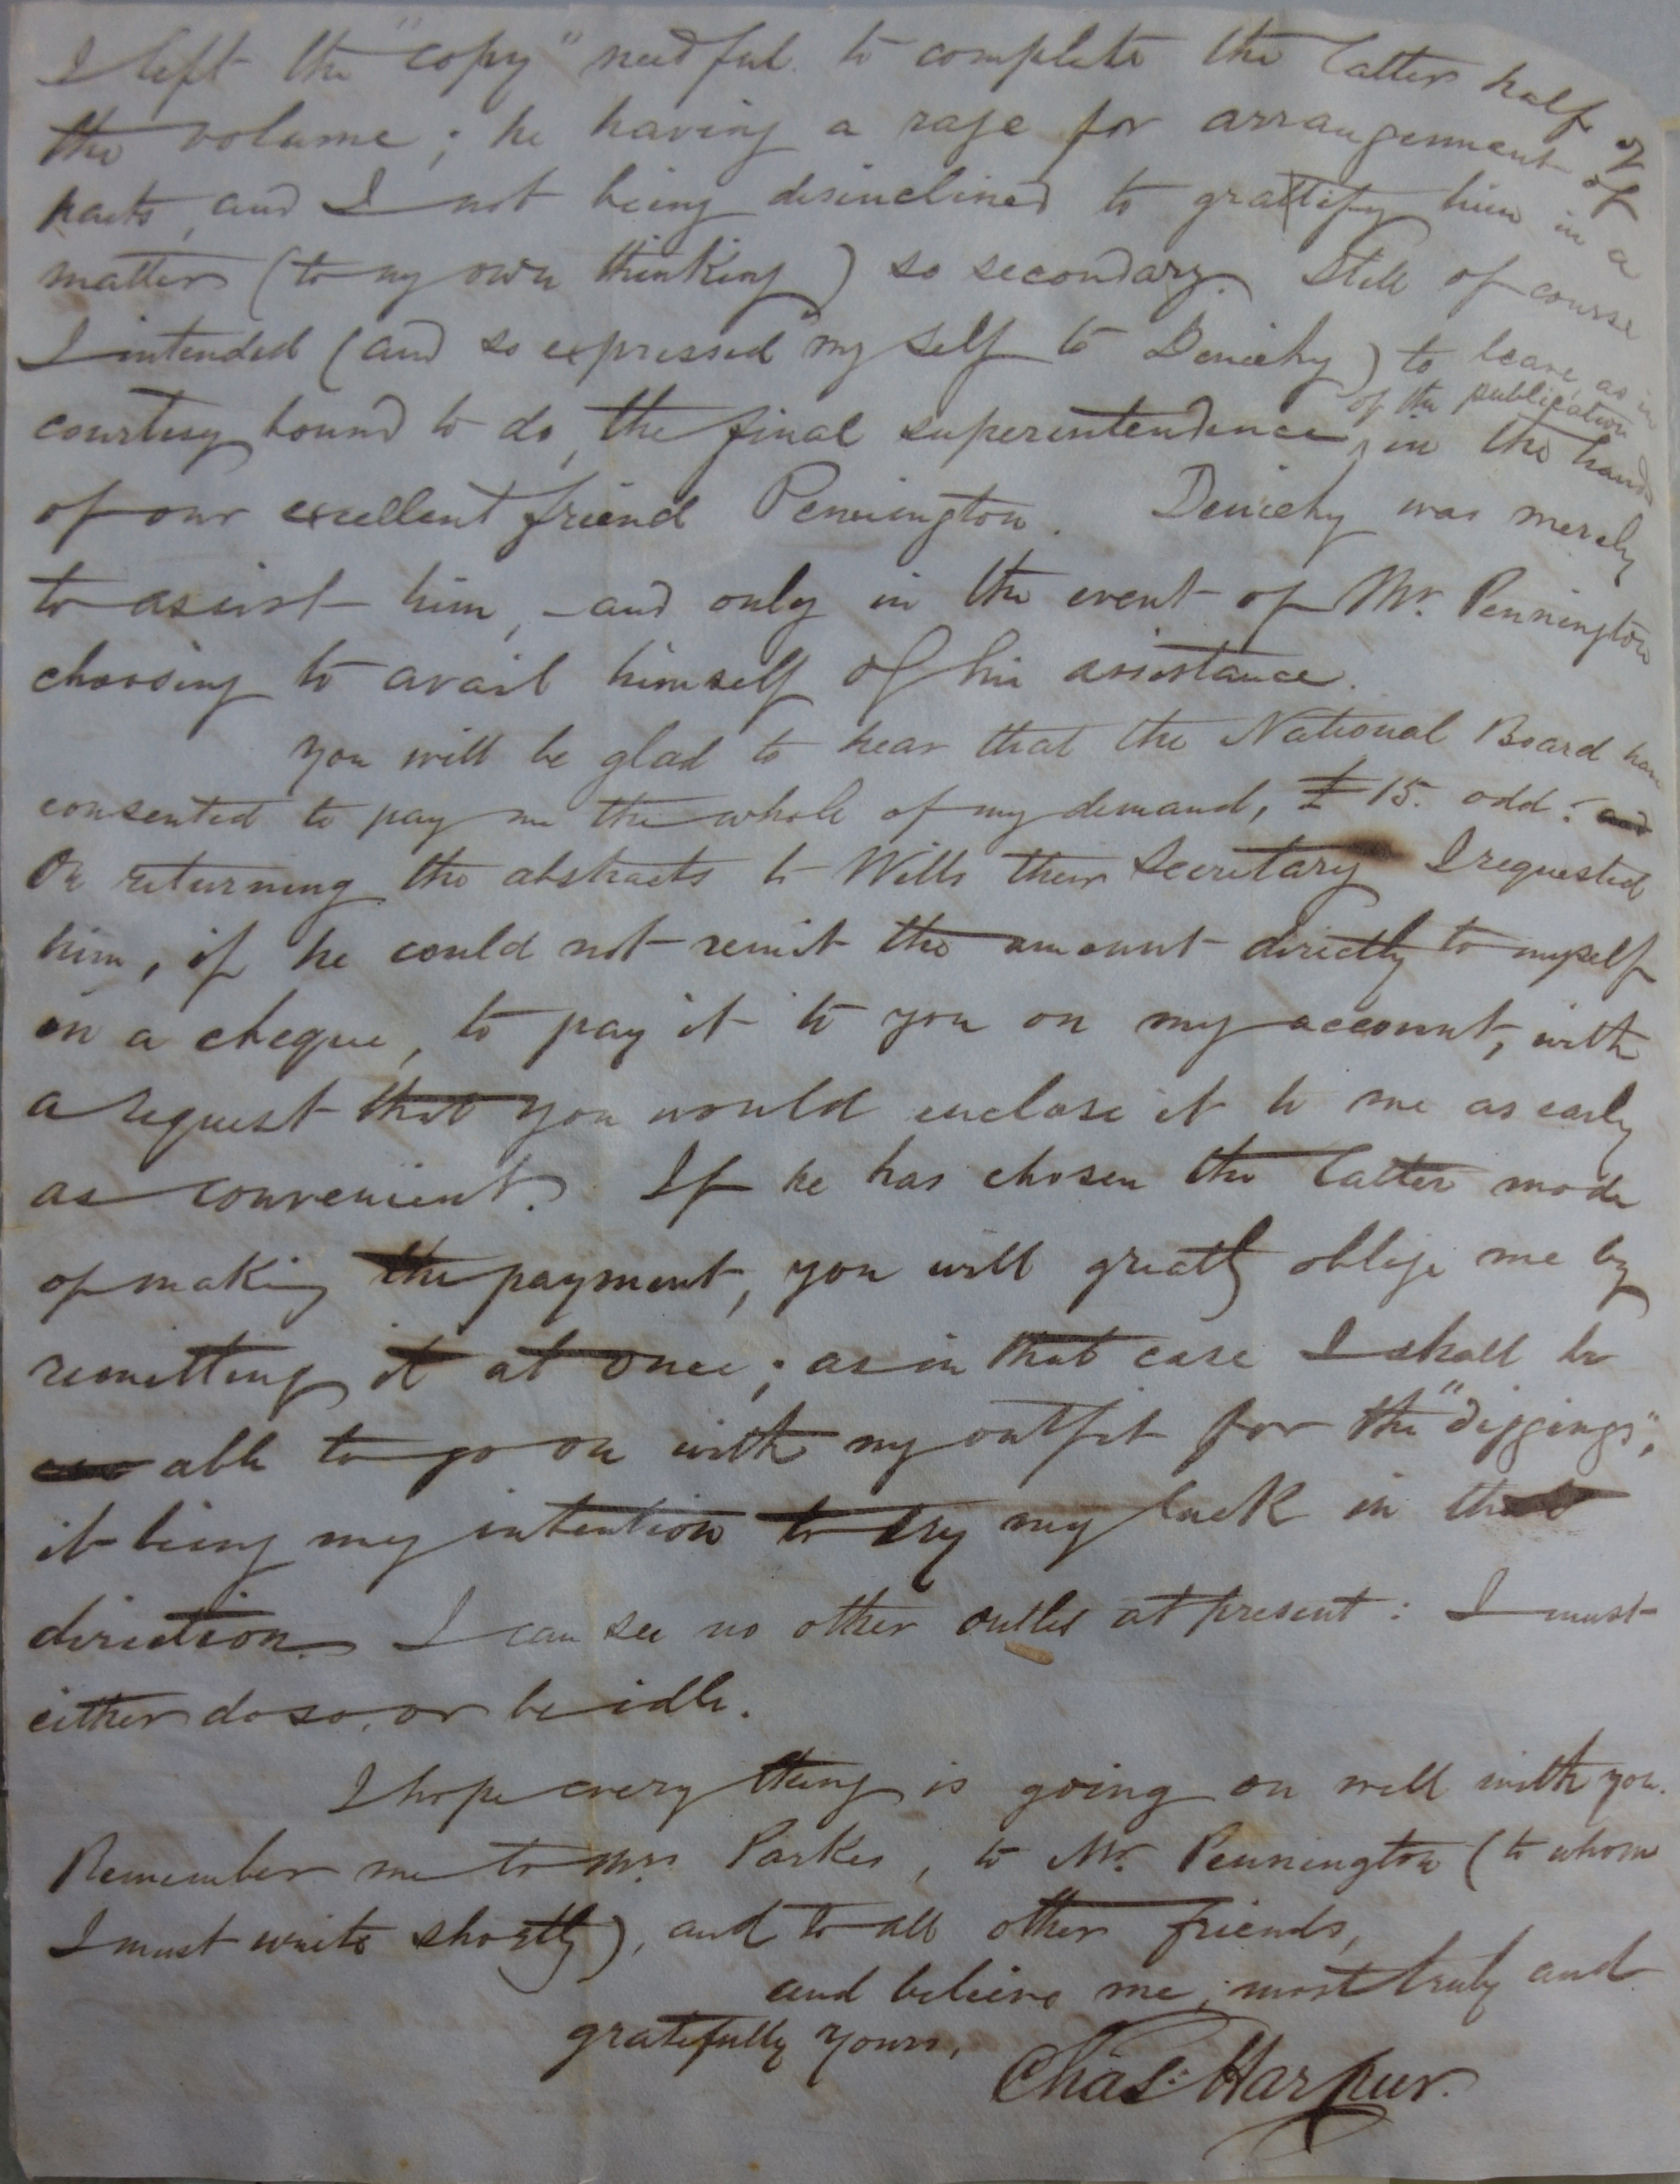 I left the "copy" needful to complete the latter half of
the volume; he having a rage for arrangement of
parts, and I not being disinclined to gratify him in a
matter (to my own thinking) so secondary. Still of course
I intended (and so expressed my self to Deniehy) to leave, as in
of the publication
courtesy bound to do, the final superintendence ‸ in the hands
of our excellent friend Pennington. Deniehy was merely
to assist him, - and only in the event of Mr. Pennington
choosing to avail himself of his assistance.
You will be glad to hear that the National Board have
consented to pay me the whole of my demand, £15. odd: and
On returning the abstracts to Wills their Secretary I requested
him, if he could not remit the amount directly to myself
in a cheque, to pay it to you on my account, with
a request that you would enclose it to me as early
as convenient. If he has chosen the latter mode
of making the payment, you will greatly oblige me by
remitting it at once; as in that case I shall be
able to go on with my outfit for the "diggings",
it being my intention to try my luck in that
direction. I can see no other outlet at present: I must
either do so, or be idle.
I hope every thing is going on well with you.
Remember me to Mrs. Parkes, to Mr. Pennington (to whom
I must write shortly), and to all other friends,
and believe me, most truly and
gratefully yours,
Chas. Harpur.